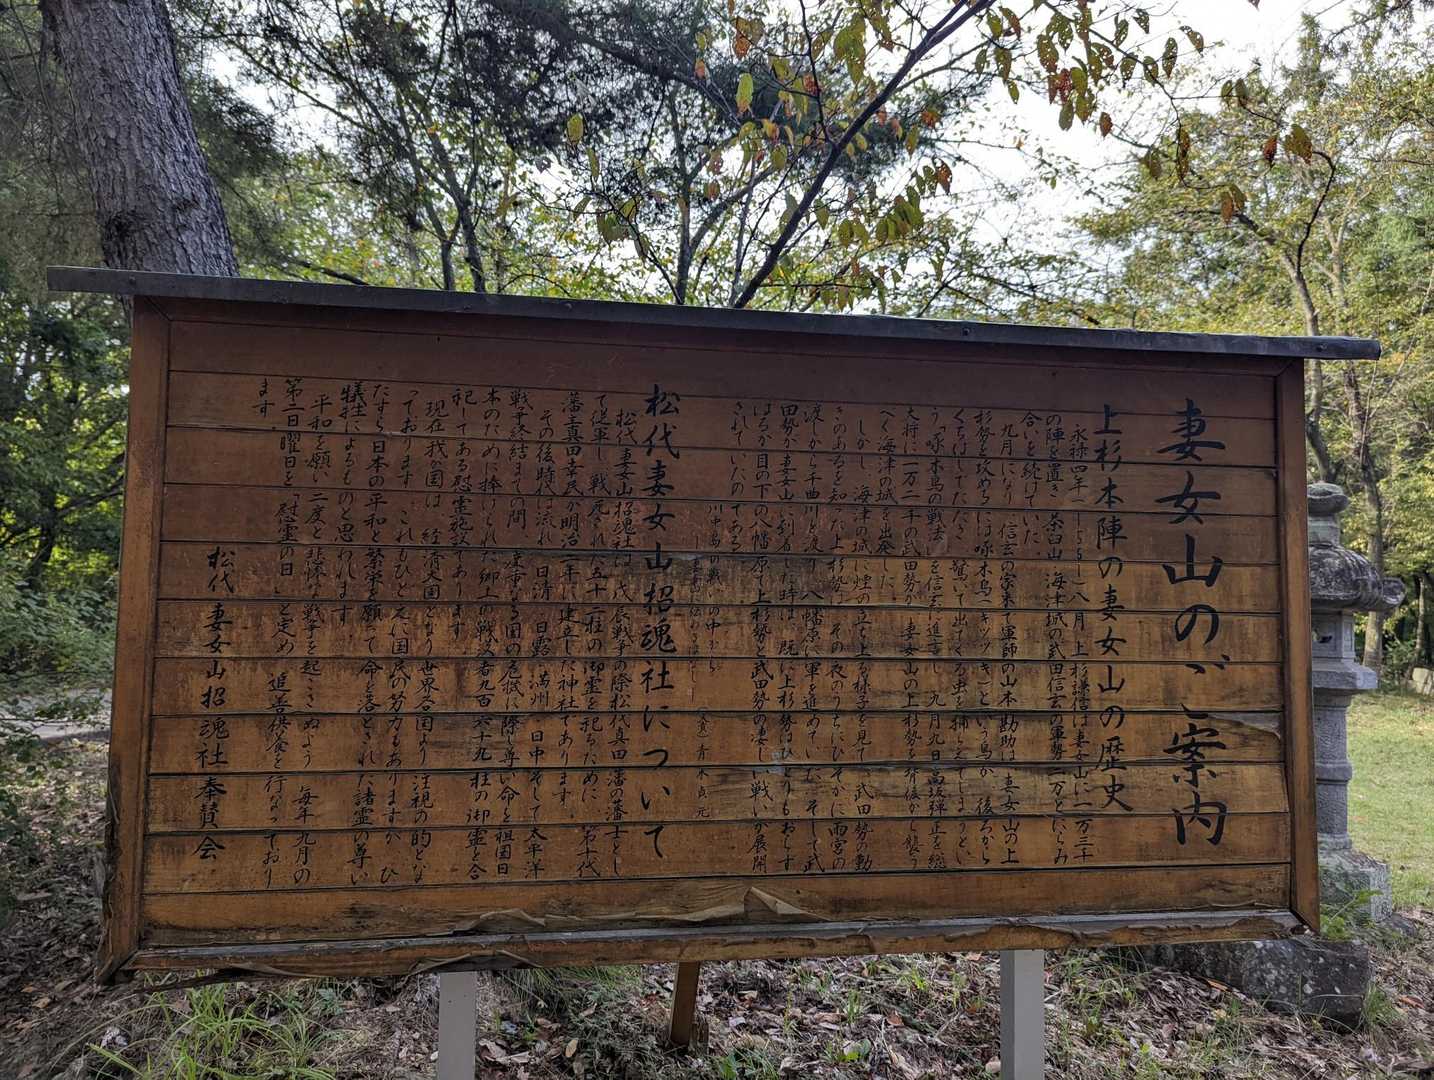 妻女山のご案内
上杉本陣の妻女山の歴史
永禄四年(一五六一)八月、上杉謙信は妻女山に一万三千
の陣を置き、茶臼山、海津城の武田信玄の軍勢二万とにらみ
合いを続けていた。
九月になり、信玄の家来で軍師の山本勘助は、妻女山の上
杉勢を攻めるには啄木鳥(キツツキ)という鳥が、後ろから
くちばしでたたき、驚いて出てくる虫を捕らえてしまうとい
う「啄木鳥の戦法」を信玄に進言し、九月九日高坂弾正を総
大将に一万二千の武田勢が、妻女山の上杉勢を背後から襲う
べく海津の城を出発した。
しかし、海津の城に煙の立ち上る様子を見て、武田勢の動
きのあるを知った上杉勢は、その夜のうちにひそかに雨宮の
渡しから千曲川を渡り、八幡原に軍を進めていた。そして武
田勢が妻女山に到着した時は、既に上杉勢はひとりもおらず
はるか目の下の八幡原で上杉勢と武田勢の凄じい戦いが展開
されていたのである。
川中島の戦いの中から
(文責)青木貞元
松代妻女山招魂社について
松代妻女山招魂社は、戊辰戦争の際松代真田藩の藩士とし
て従軍し、戦死された、五十二柱の御霊を祀るために、第十代
藩主真田幸民が明治二年に建立した神社であります。
その後時代は流れ、日清、日露、満州、日中そして太平洋
戦争終結までの間、度重なる国の危機に際し尊い命を祖国日
本のために捧げられた郷土の戦没者九百六十九柱の御霊を合
祀してある慰霊施設であります。
現在我が国は、経済大国となり、世界各国より注視の的とな
っております。これもひとえに国民の努力もありますが、ひ
たすら日本の平和と繁栄を願って命を落とされた諸霊の尊い
犠牲によるものと思われます。
平和を願い、二度と悲惨な戦争を起こさぬよう、毎年九月の
第二日曜日を「慰霊の日」と定め、追善供養を行なっており
ます。
松代妻女山招魂社奉賛会